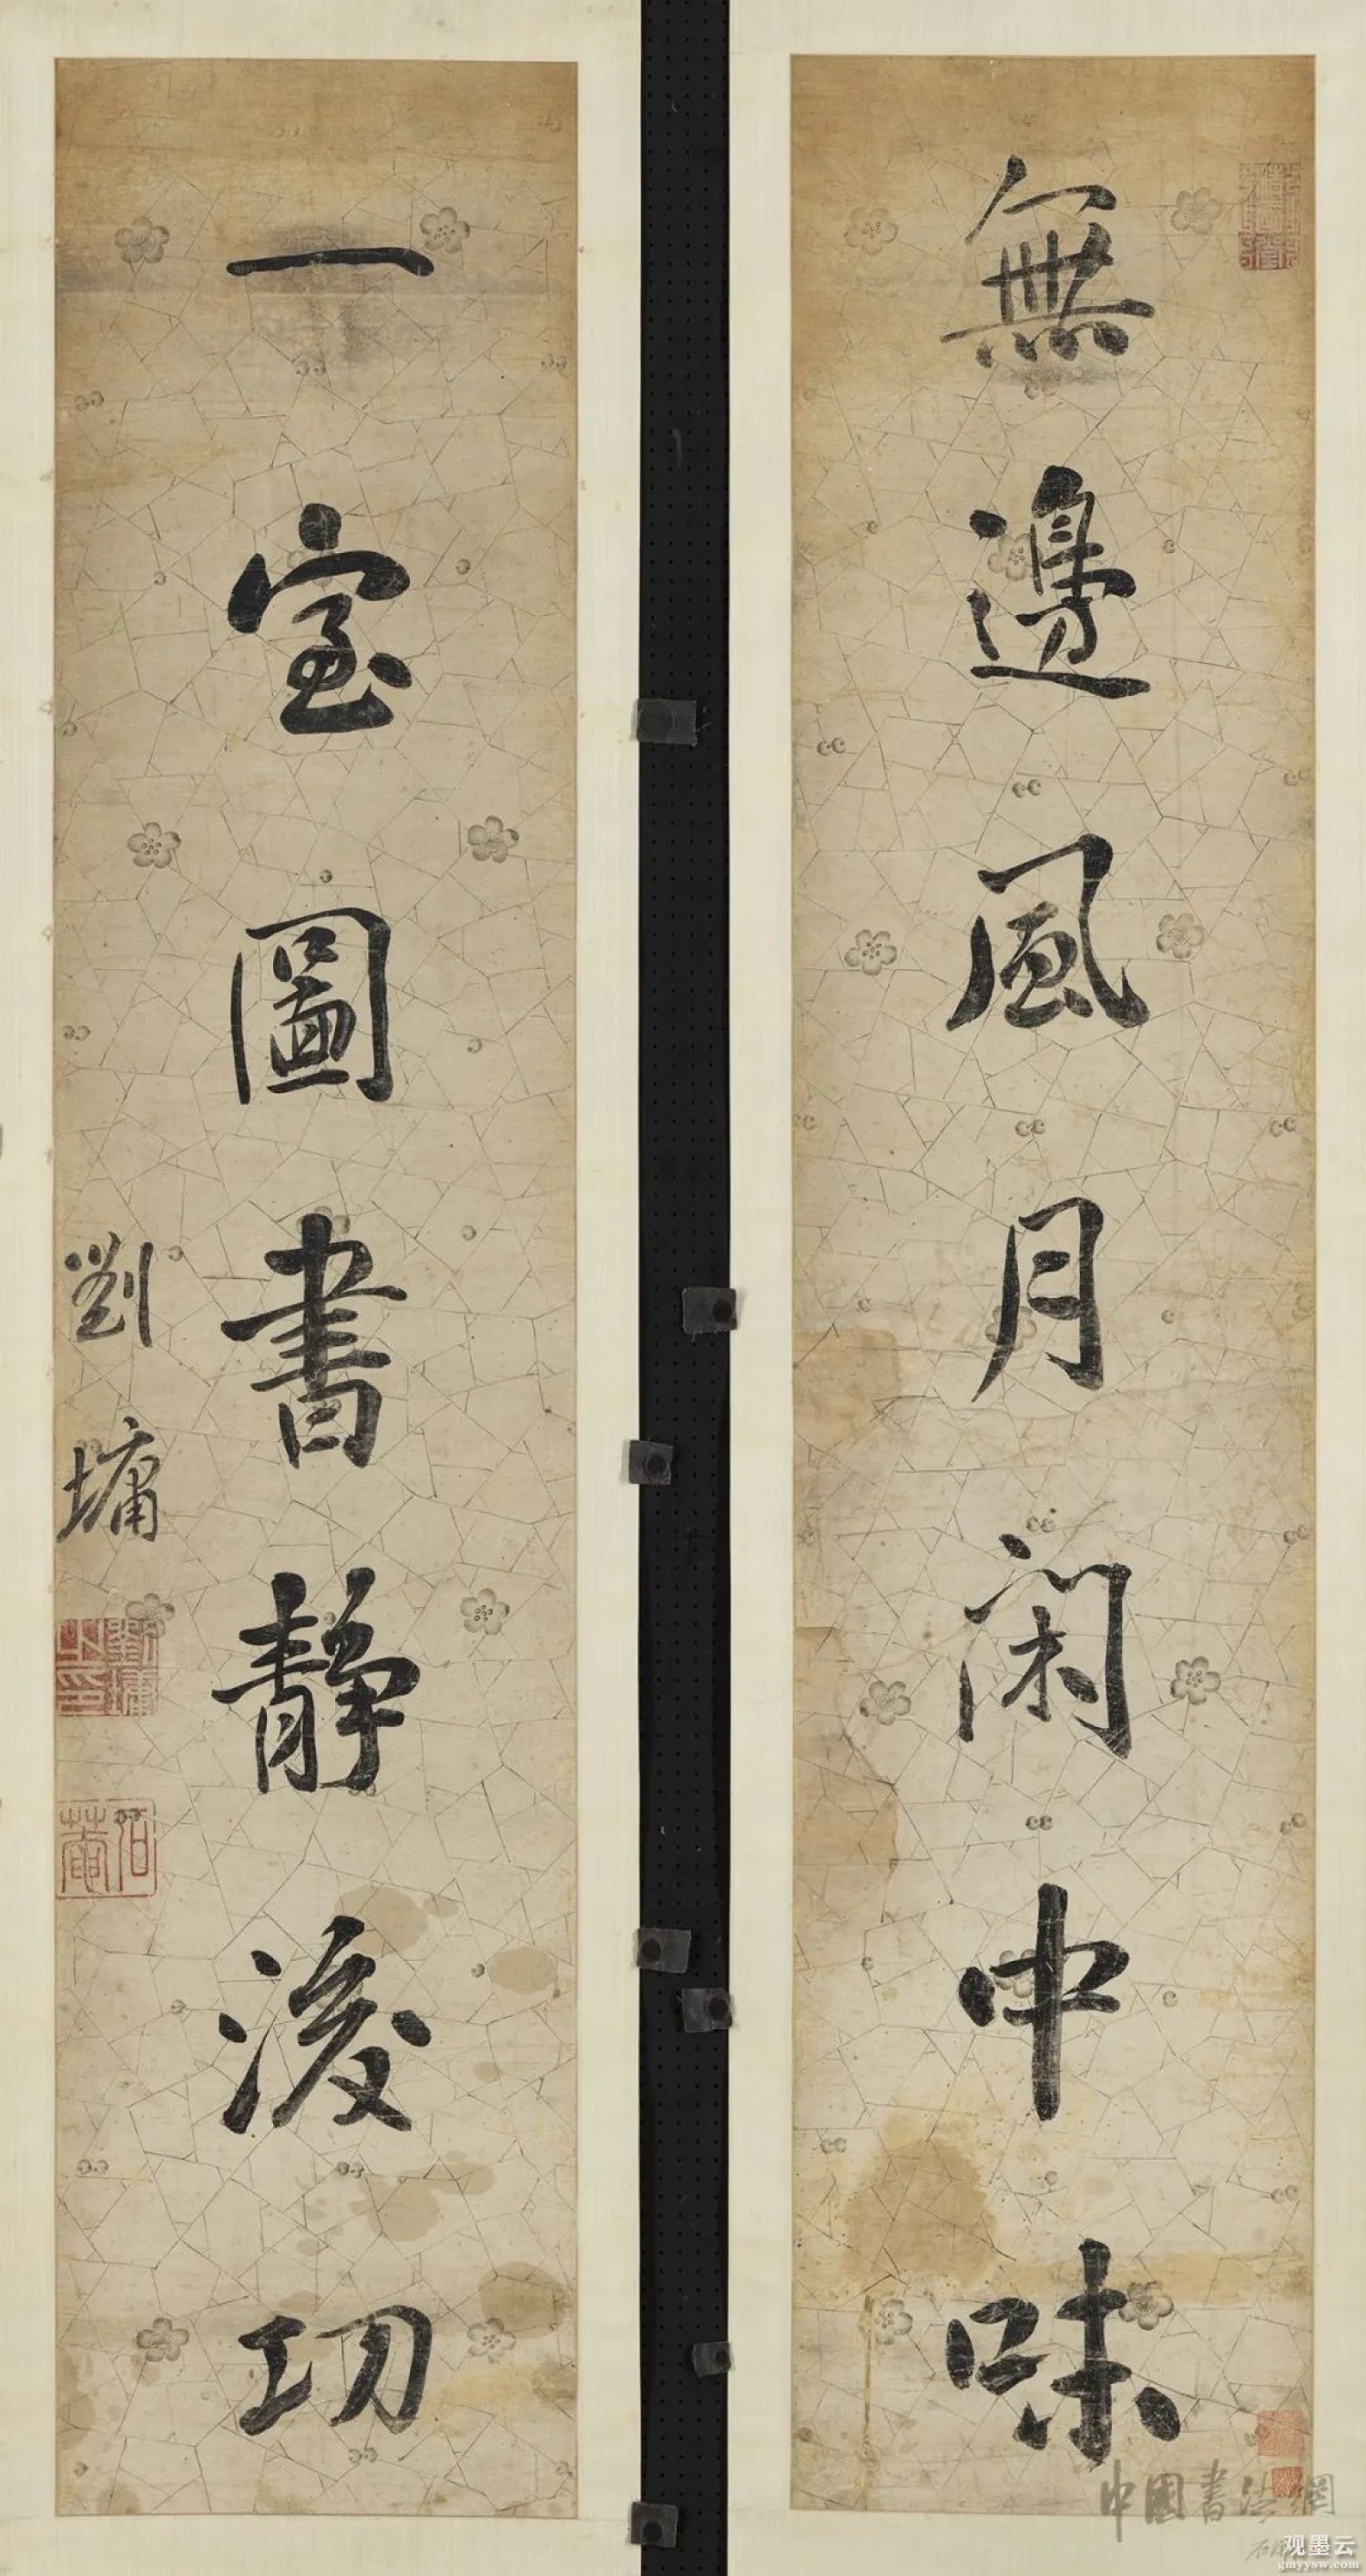 無邊風月閑中味
一室圖書靜後功
劉墉
劉墉之印
石菴
中國書法網
观墨云
gmyysw.com